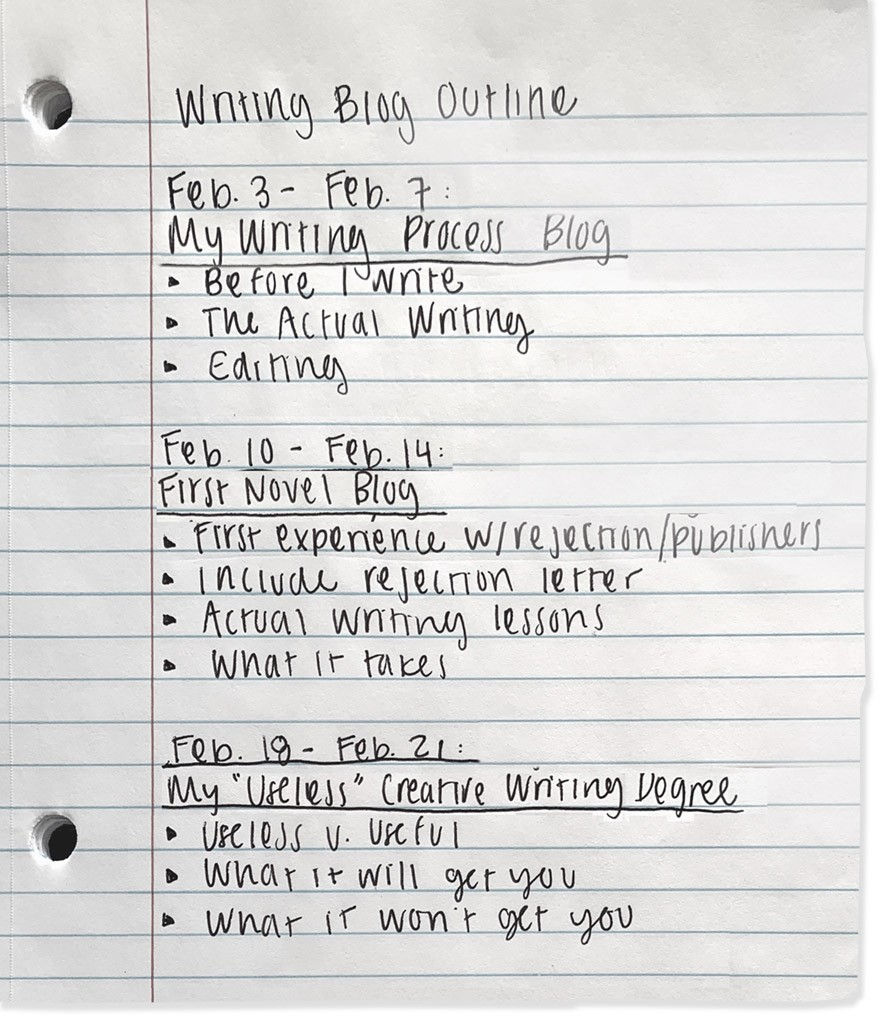 Writing Blog Outline
Feb. 3 - Feb. 7:
My Writing Process Blog
• Before I Write
• The Actual Writing
• Editing
Feb. 10 - Feb. 14:
First Novel Blog
• First experience w/rejection/publishers
• Include rejection letter
• Actual writing lessons
• What it takes
Feb. 18 - Feb. 21:
My "Useless" Creative Writing Degree
• Useless v. Useful
• What it will get you
• What it won't get you